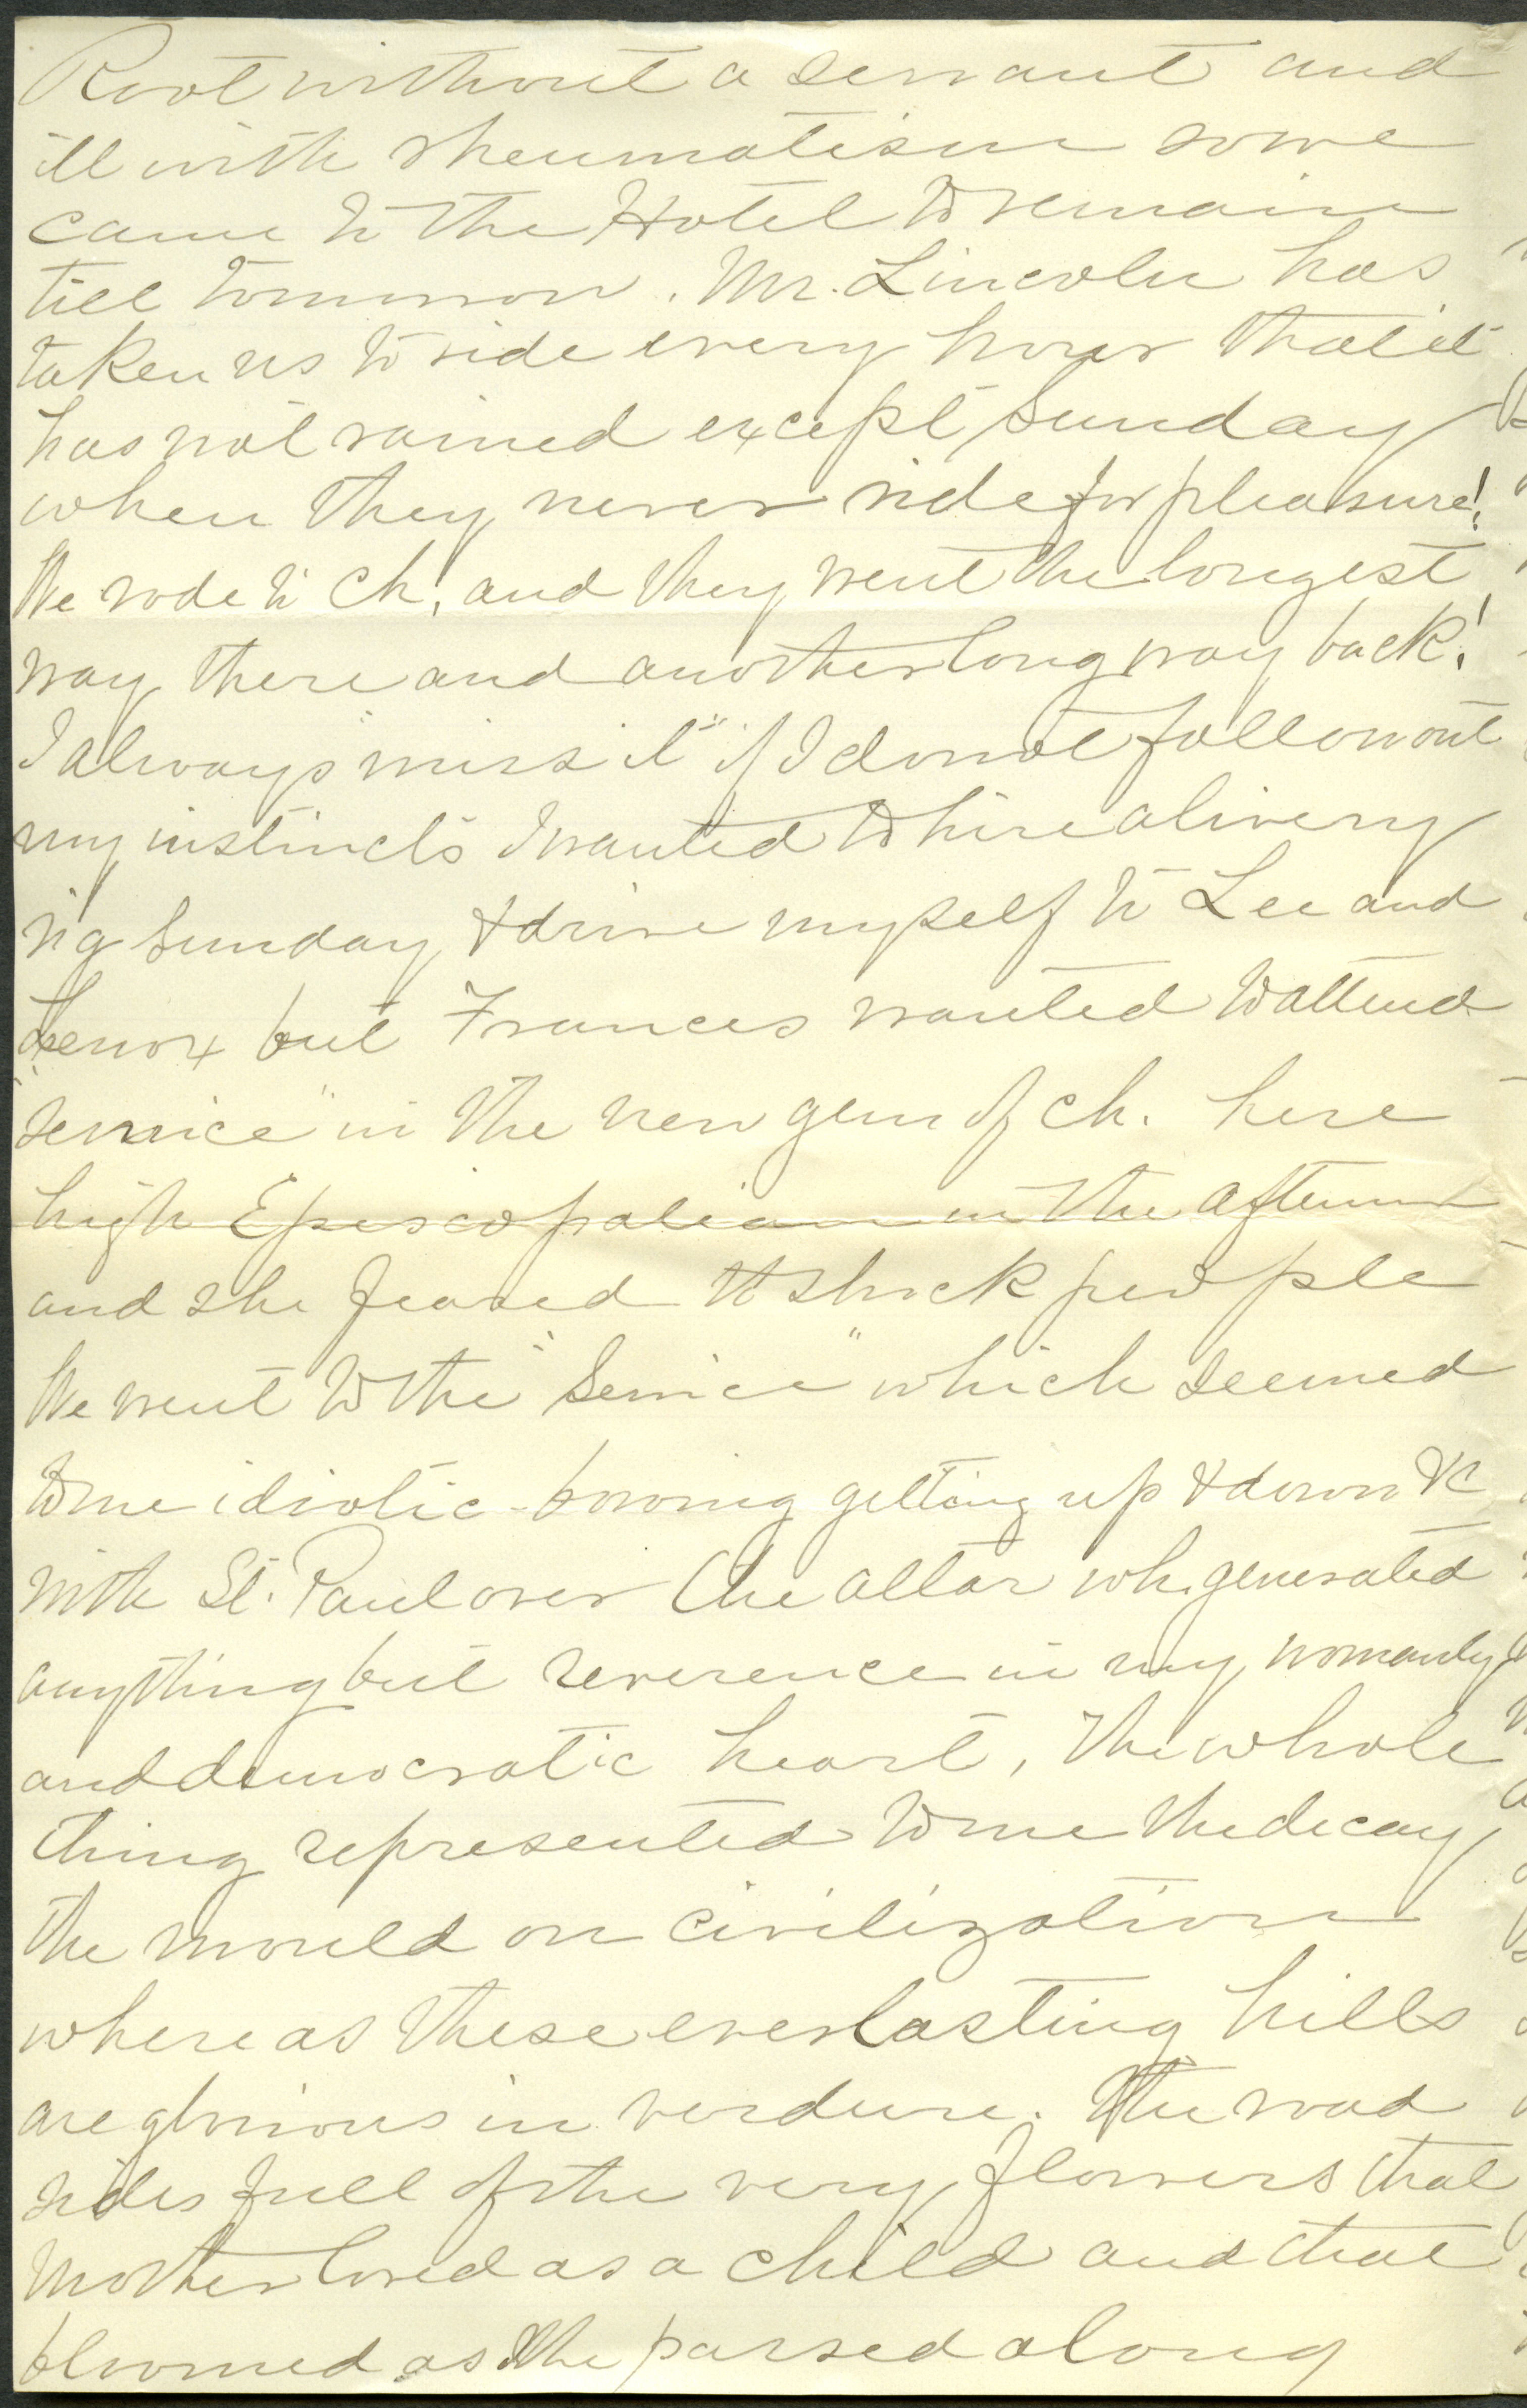 Root without a servant and
ill with rheumatism so we
came to the Hotel to remain
till tomorrow. Mr. Lincoln has
taken us to ride every hour that it
has not rained except Sunday
when they never ride for pleasure!
We rode to Ch. and they went the longest
way there and another long way back!
I always "miss it" if I do not follow out
my instincts I wanted to hire a livery
rig Sunday & drive myself to Lee and
Lenox but Frances wanted to attend
"service" in the new gem of ch. here
high Episcopalian in the afternoon
and she feared to shock people
We went to the "Service" which seemed
to me idiotic - bowing getting up & down &c
with St. Paul over the altar wh. generated
anything but reverence in my womanly
and democratic heart, The whole
thing represented to me the decay
the mould on civilization
where as these everlasting hills
are glorious in verdure. The road
sides full of the very flowers that
Mother loved as a child and that
bloomed as she passed along